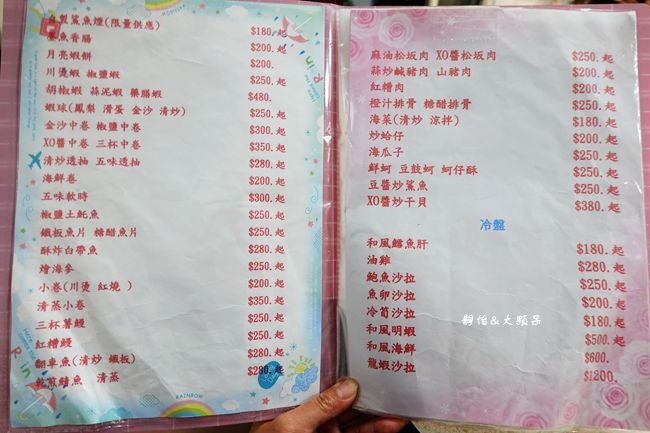 自製鯊魚煙(限量供應) $180.起
章魚香腸 $200.起
月亮蝦餅 $200.
川燙蝦 椒鹽蝦 $250.起
胡椒蝦 蒜泥蝦 藥膳蝦 $480.
蝦球(鳳梨 滑蛋 金沙 清炒) $250.起
金沙中卷 椒鹽中卷 $300.起
XO醬中卷 三杯中卷 $350.起
清炒透抽 五味透抽 $280.起
海鮮卷 $200.起
五味軟時 $300.起
椒鹽土魠魚 $250.起
鐵板魚片 糖醋魚片 $250.起
酥炸白帶魚 $280.起
燴海參 $250.起
小卷(川燙 紅燒 ) $200.起
清蒸小卷 $350.起
三杯薯鰻 $250.起
紅糟鰻 $250.起
翻車魚(清炒 鐵板) $280.起
乾煎鱈魚 清蒸 $280.起
RAINBOW
麻油松坂肉 XO醬松坂肉 $250.起
蒜炒鹹豬肉 山豬肉 $200.起
紅糟肉 $200.起
橙汁排骨 糖醋排骨 $250.起
海菜(清炒 涼拌) $180.起
炒蛤仔 $200.起
海瓜子 $250.起
鮮蚵 豆鼓蚵 蚵仔酥 $250.起
豆醬炒鯊魚 $250.起
XO醬炒干貝 $380.起
冷盤
和風鱈魚肝 $180.起
油雞 $280.起
鮑魚沙拉 $250.起
魚卵沙拉 $200.起
冷筍沙拉 $180.起
和風明蝦 $500.起
和風海鮮 $600.
龍蝦沙拉 $1200.